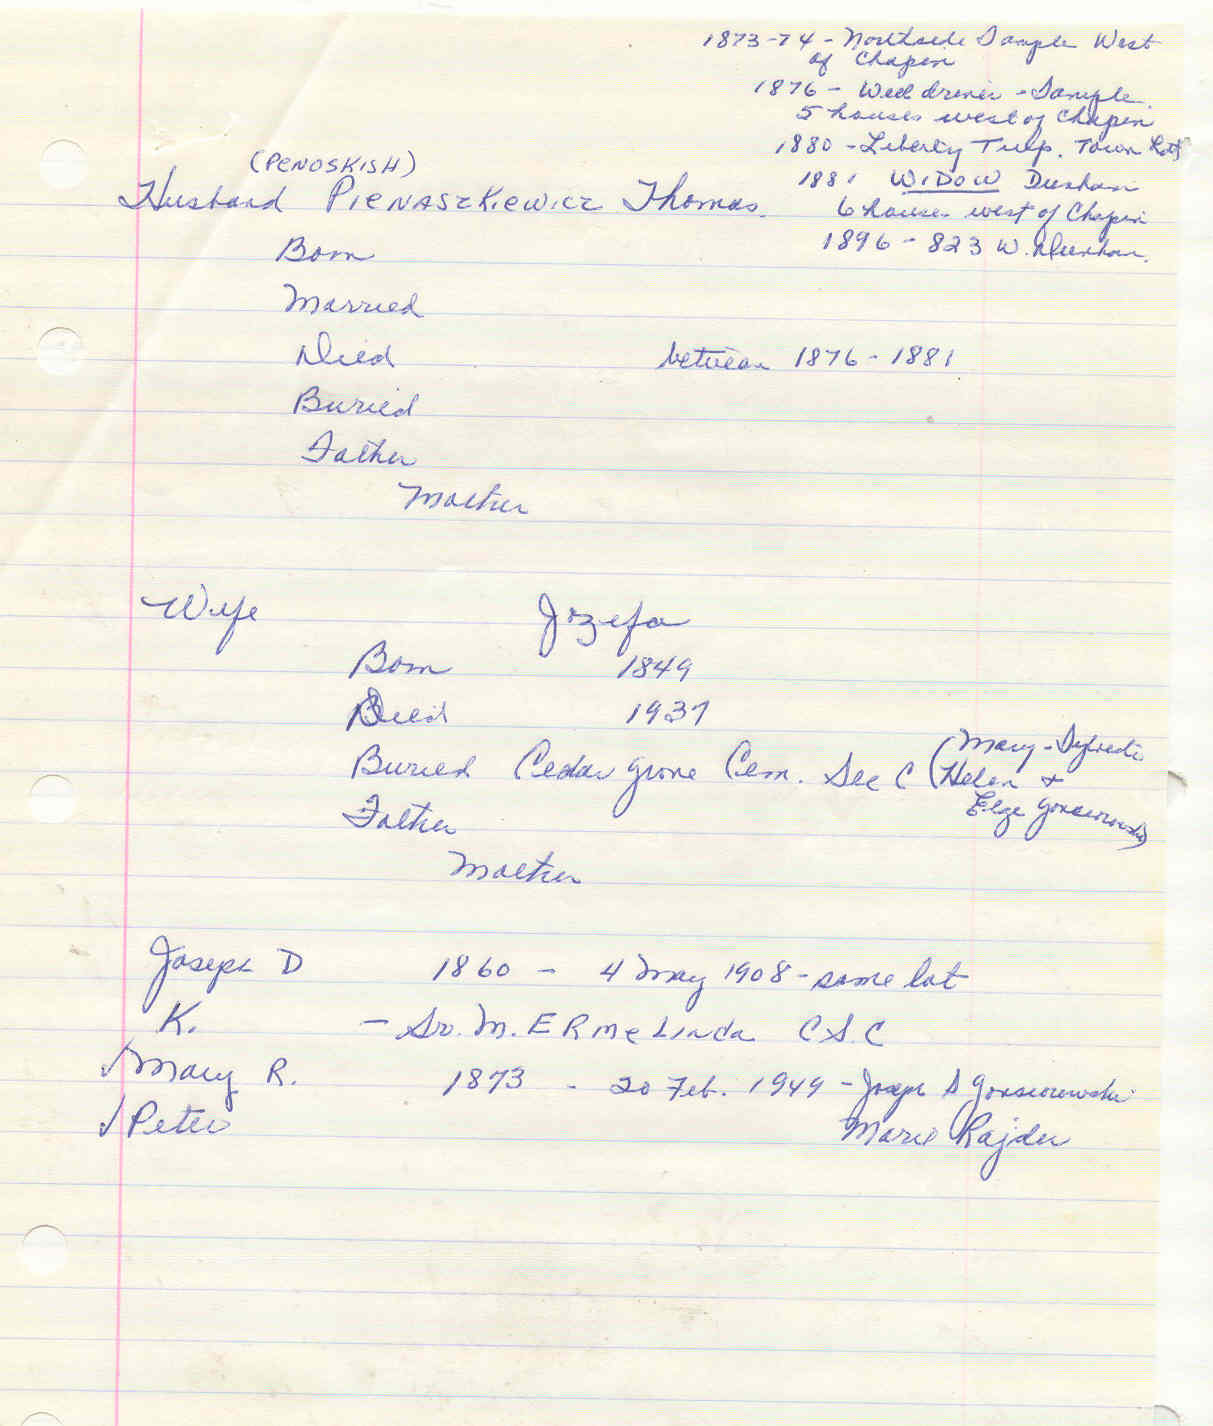 1873-74 - Northside Sample West
of Chapin
1876 - Well driver - Sample
5 houses west of Chapin
1880 - Liberty Twp. Town Lots
1881 WIDOW Dunham
6 houses west of Chapin
1896 - 823 W. Dunham.
(PENOSKISH)
Husband PIENASZKIEWICZ Thomas.
Born
Married
Died between 1876-1881
Buried
Father
Mother
Wife Jozefa
Born 1849
Died 1937
Buried Cedar Grove Cem. Sec C (Mary -
Helen &
Gonsiorowski)
Father
Mother
Joseph D 1860 - 4 May 1908 - same lot
K. - Sr. M. ERMeLinda CSC
√Mary R. 1873 - 20 Feb. 1949 - Joseph S Gonsiorowski
√Peter Marie Rajter